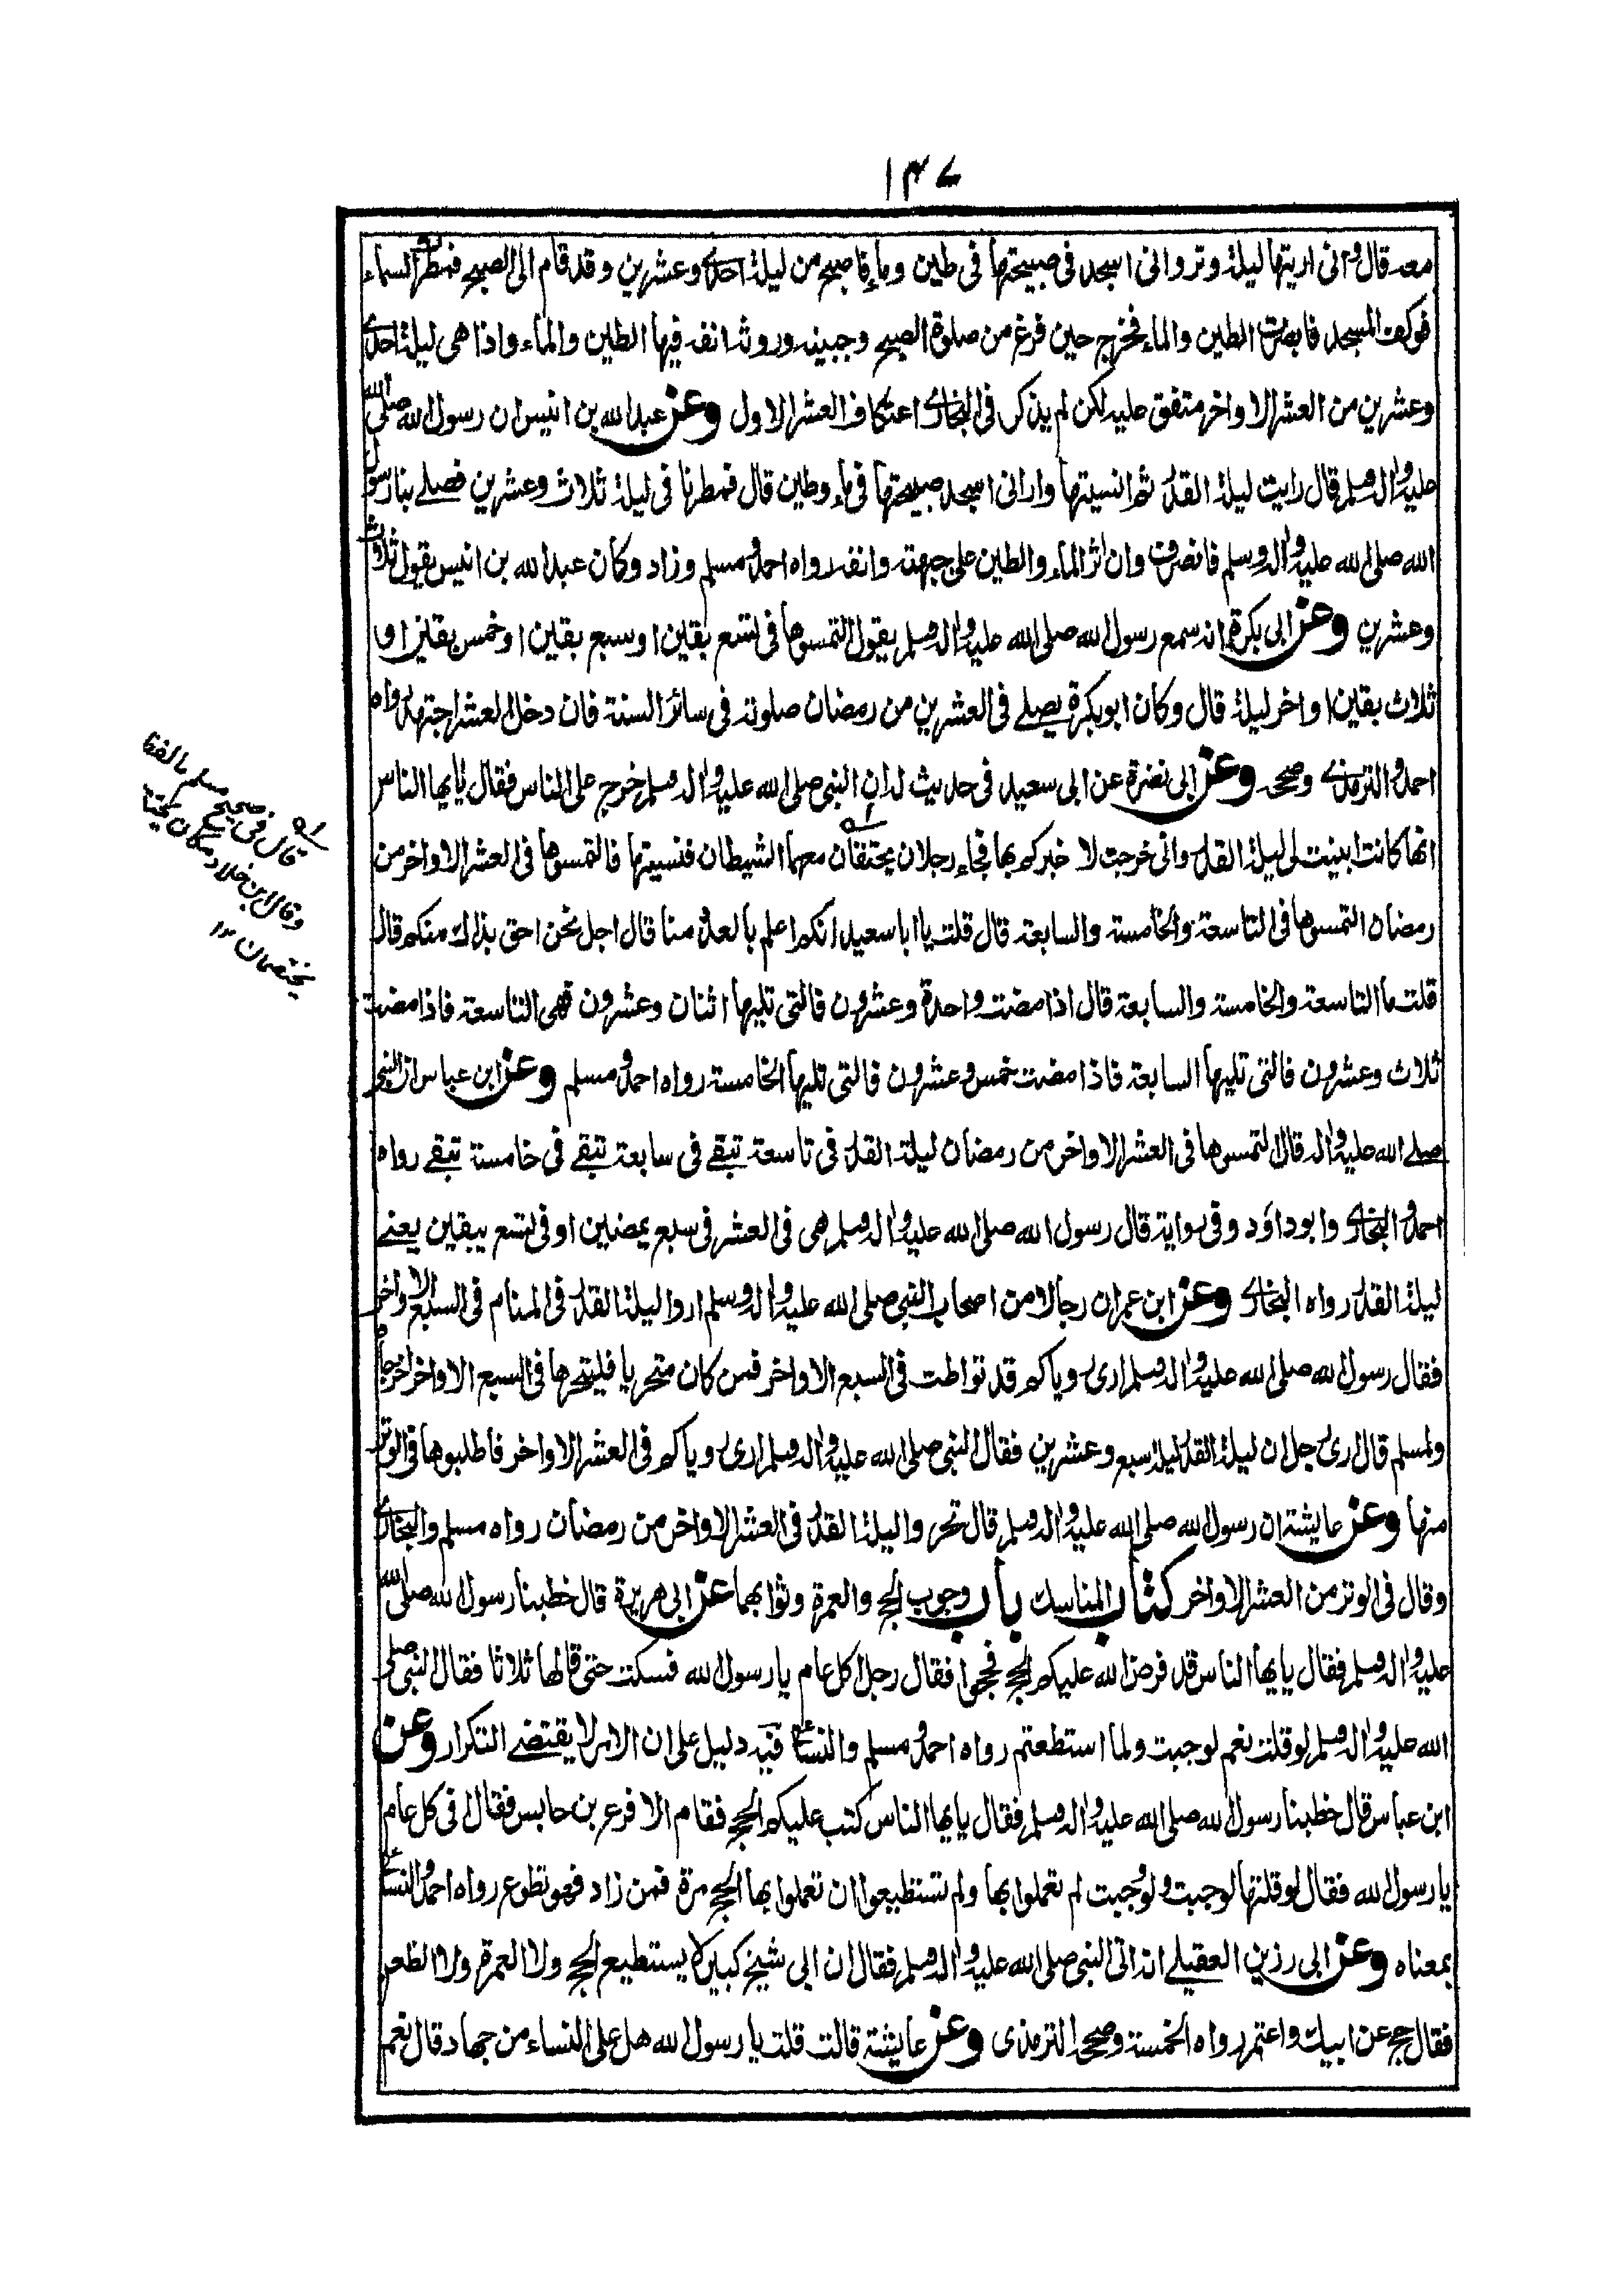 ١٤٧
معه قال وانى اريتها ليلة وتر وانى اسجد فى صبيحتها فى طين وماء فاصبح من ليلة احدى وعشرين وقد قام الى الصبح فمطرت السماء
فوكف المسجد فابصرت الطين والماء فخرج حين فرغ من صلوة الصبح وجبينه وروثة انفه فيها الطين والماء واذا هى ليلة احدى
وعشرين من العشر الاواخر متفق عليه لكن لم يذكر فى البخارى اعتكاف العشر الاول وعن عبد الله بن انيس ان رسول الله صلى الله
عليه واله وسلم قال رايت ليلة القدر ثم انسيتها وارانى اسجد صبيحتها فى ماء وطين قال فمطرنا فى ليلة ثلاث وعشرين فصلے بنا رسول
الله صلى الله عليه واله وسلم فانصرف وان اثر الماء والطين على جبهته وانفه رواه احمد ومسلم وزاد وكان عبد الله بن انيس يقول ثلاث
وعشرين وعن ابى بكرة انه سمع رسول الله صلى الله عليه واله وسلم يقول التمسوها فى تسع بقين او سبع بقين او خمس بقين او
ثلاث بقين او اخر ليلة قال وكان ابو بكرة يصلے فى العشرين من رمضان صلوته فى سائر السنة فان دخل العشر اجتهد رواه
احمد والترمذى وصححه وعن ابى نضرة عن ابى سعيد فى حديث له ان النبى صلى الله عليه واله وسلم خرج على الناس فقال يايها الناس
انها كانت ابينت لى ليلة القدر وانى خرجت لاخبركم بها فجاء رجلان يحتقان معهما الشيطان فنسيتها فالتمسوها فى العشر الاواخر من
رمضان التمسوها فى التاسعة والخامسة والسابعة قال قلت يا ابا سعيد انكم اعلم بالعدد منا قال اجل نحن احق بذلك منكم قال
قلت ما التاسعة والخامسة والسابعة قال اذا مضت واحدة وعشرون فالتى تليها اثنان وعشرون فهى التاسعة فاذا مضت
ثلاث وعشرون فالتى تليها السابعة فاذا مضت خمس وعشرون فالتى تليها الخامسة رواه احمد ومسلم وعن ابن عباس ان النبى
صلے الله عليه واله قال التمسوها فى العشر الاواخر من رمضان ليلة القدر فى تاسعة تبقے فى سابعة تبقے فى خامسة تبقے رواه
احمد والبخارى وابو داؤد وفى رواية قال رسول الله صلى الله عليه واله وسلم هى فى العشر فى سبع يمضين او فى تسع يبقين يعنے
ليلة القدر رواه البخارى وعن ابن عمر ان رجالا من اصحاب النبى صلى الله عليه واله وسلم اروا ليلة القدر فى المنام فى السبع الاواخر
فقال رسول الله صلى الله عليه واله وسلم ارى روياكم قد تواطت فى السبع الاواخر فمن كان متحريا فليتحرها فى السبع الاواخر اخرجاه
ولمسلم قال ارى رجل ان ليلة القدر ليلة سبع وعشرين فقال النبى صلى الله عليه واله وسلم ارى روياكم فى العشر الاواخر فاطلبوها فى الوتر
منها وعن عايشة ان رسول الله صلى الله عليه واله وسلم قال تحروا ليلة القدر فى العشر الاواخر من رمضان رواه مسلم والبخارى
وقال فى الوتر من العشر الاواخر كتاب المناسك باب وجوب الحج والعمرة وثوابهما عن ابى هريرة قال خطبنا رسول الله صلى الله
عليه واله وسلم فقال يايها الناس قد فرض الله عليكم الحج فحجوا فقال رجل اكل عام يا رسول الله فسكت حتى قالها ثلاثا فقال النبى صلى
الله عليه واله وسلم لو قلت نعم لوجبت ولما استطعتم رواه احمد ومسلم والنسائى فيه دليل على ان الامر لا يقتضے التكرار وعن
ابن عباس قال خطبنا رسول الله صلى الله عليه واله وسلم فقال يايها الناس كتب عليكم الحج فقام الاقرع بن حابس فقال افى كل عام
يا رسول الله فقال لو قلتها لوجبت ولو وجبت لم تعملوا بها ولم تستطيعوا ان تعملوا بها الحج مرة فمن زاد فهو تطوع رواه احمد والنسائى
بمعناه وعن ابى رزين العقيلے انه اتى النبى صلى الله عليه واله وسلم فقال ان ابى شيخ كبير لا يستطيع الحج ولا العمرة ولا الظعن
فقال حج عن ابيك واعتمر رواه الخمسة وصححه الترمذى وعن عايشة قالت قلت يا رسول الله هل على النساء من جهاد قال نعم
قال فى صحيح مسلم
وقال ابن خلاد مكان يحتقان
يختصمان ١٢